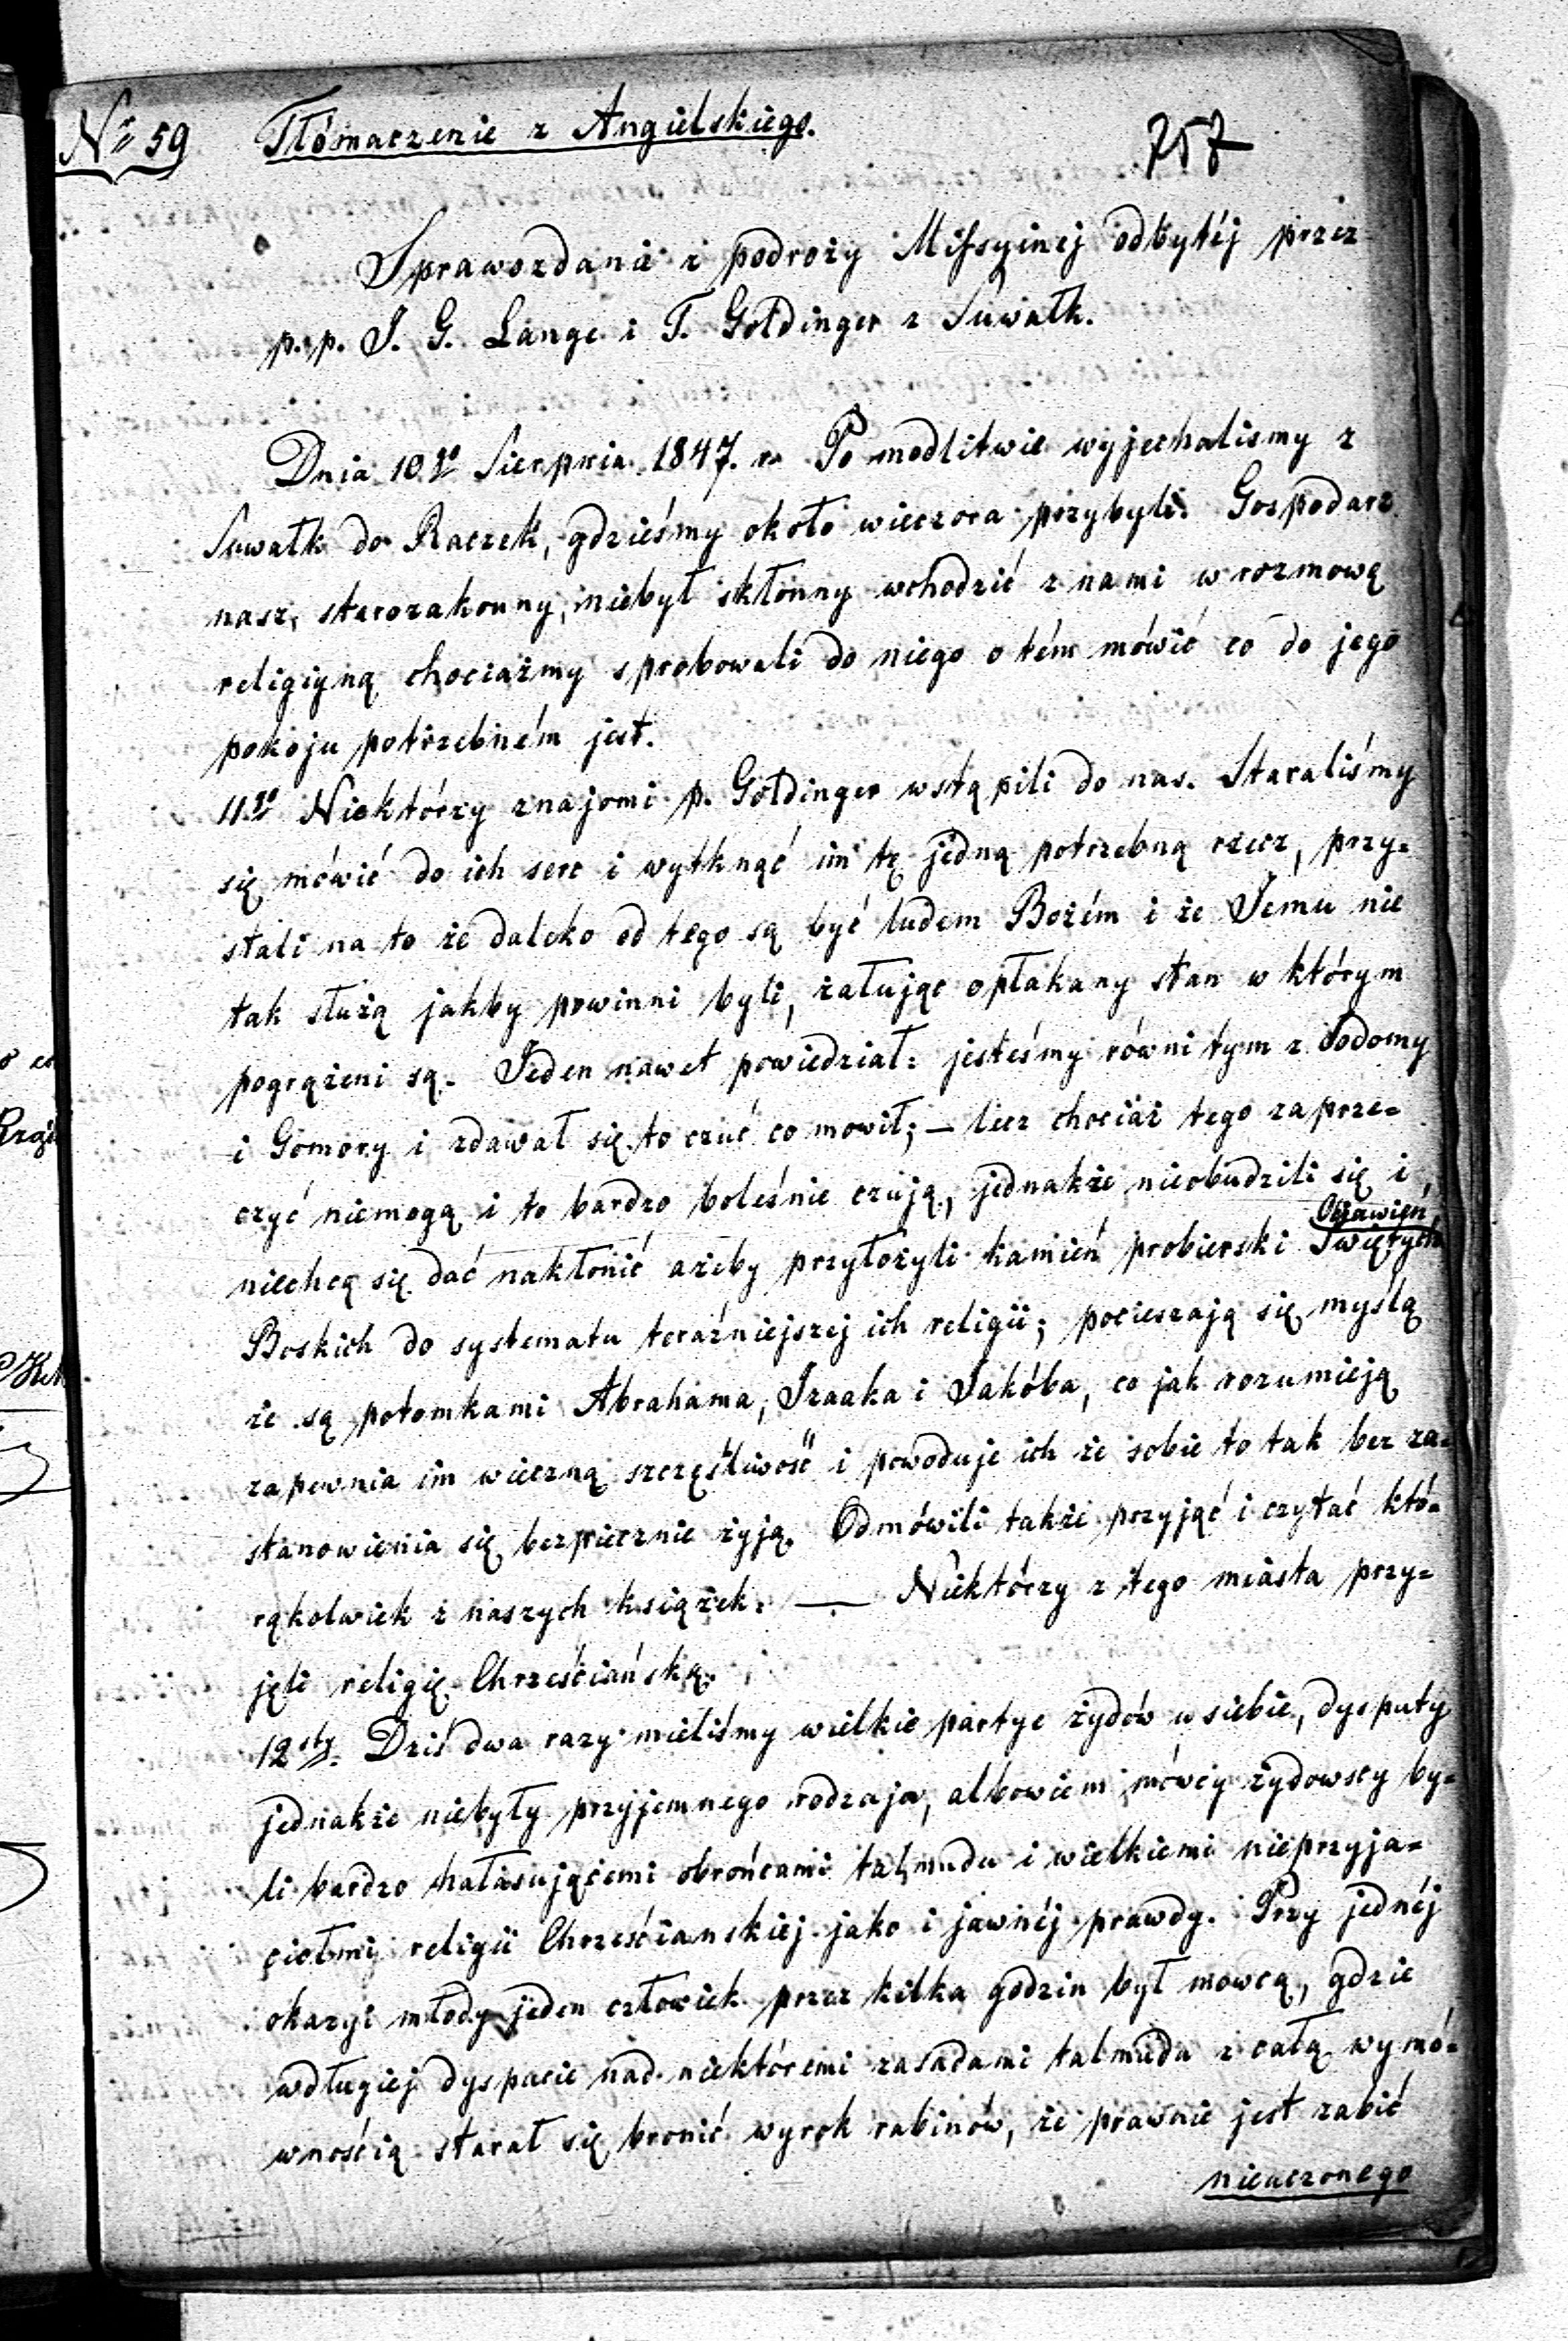 Nr 59 Tłómaczenie z Angielskiego.
757
Sprawozdanie z podroży Missyinej odbytéj przez
p.p. J. G. Lange i T. Goldinger z Suwałk.
Dnia 10.go Sierpnia 1847. r. Po modlitwie wyjechalismy z
Suwałk do Raczek, gdzieśmy około wieczora przybyli. Gospodarz
nasz, starozakonny, niebył skłonny wchodzić z nami w rozmowę
religiyną, chociażmy sprobowali do niego o tém mówić co do jego
pokoju potrzebném jest.
11.go Niektórzy znajomi p. Goldinger wstąpili do nas. Staraliśmy
się mówić do ich serc i wytknąć im tę jedną potrzebną rzecz, przy=
stali na to że daleko od tego są być ludem Bożém i że Jému nie
tak służą jakby powinni byli, żałując opłakany stan w którym
pogrążeni są. Jeden nawet powiedział: jesteśmy równi tym z Sodomy
i Gomory i zdawał się to czuć co mowił; — lecz chociaż tego zaprze=
czyć niemogą i to bardzo boleśnie czują, jednakże nieobudzili się i
Objawień
niechcą się dać nakłonić ażeby przyłożyli kamień probierski Świętych
Boskich do systematu teraźniejszej ich religii; pocieszają się myślą
że są potomkami Abrahama, Izaaka i Jakóba, co jak rozumieją
zapewnia im wieczną szczęśliwość i powoduje ich że sobie to tak bez za=
stanowienia się bezpiecznie żyją. Odmówili także przyjąć i czytać któ=
rąkolwiek z naszych książek. — Niektórzy z tego miasta przy=
jęli religię Chrześciańską.
12sty. Dziś dwa razy mieliśmy wielkie partye żydów u siebie, dysputy
jednakże niebyły przyjemnego rodzaju, albowiem mówcy żydowscy by=
li bardzo hałasującemi obrońcami talmudu i wielkiemi nieprzyja=
ciołmi religii Chrześcianskiej jako i jawnéj prawdy. Przy jednéj
okazyi młody jeden człowiek przez kilka godzin był mowcą, gdzie
wdługiej dyspucie nad niektóremi zasadami talmuda z całą wymó=
wnością starał się bronić wyrok rabinów, że prawnie jest zabić
nieuczonego